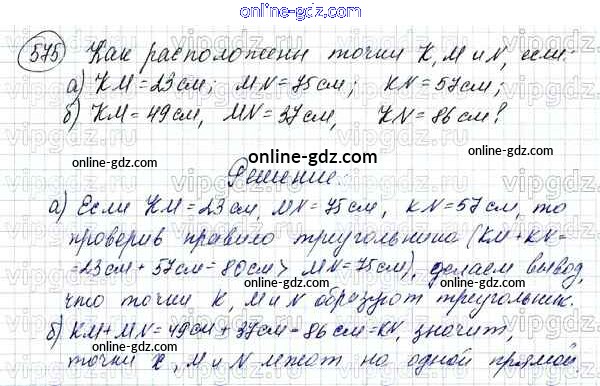 online-gdz.com
575 Как расположены точки K, M и N, если:
а) KM = 23 см; MN = 75 см; KN = 57 см;
б) KM = 49 см, MN = 37 см, KN = 86 см?
online-gdz.com
online-gdz.com online-gdz.com
Решение:
а) Если KM = 23 см, MN = 75 см, KN = 57 см, то
проверив правило треугольника (KM + KN =
= 23 см + 57 см = 80 см > MN = 75 см), делаем вывод,
online-gdz.com online-gdz.com
что точки K, M и N образуют треугольник.
б) KM + MN = 49 см + 37 см = 86 см = KN, значит,
точки K, M и N лежат на одной прямой
online-gdz.com